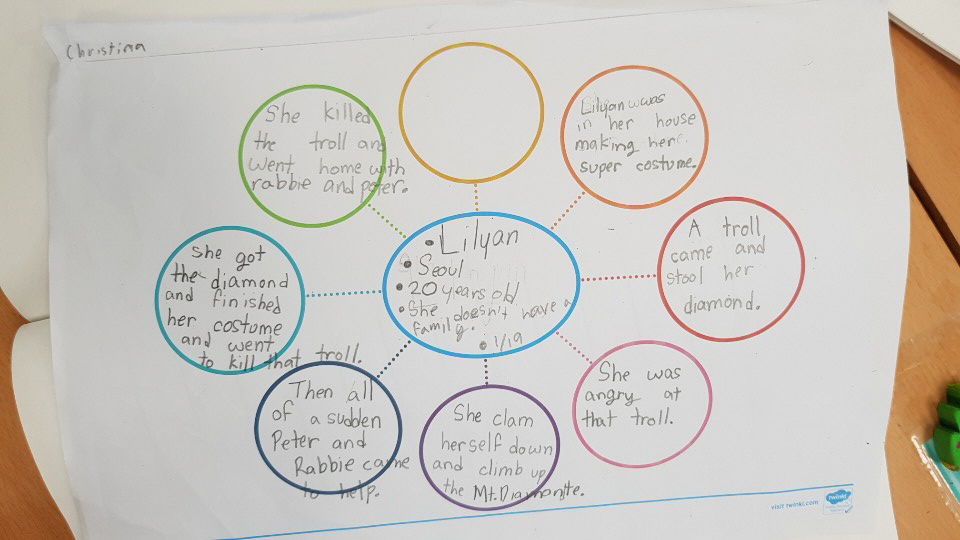 Christina
Lilyan
Seoul
20 years old
She doesn't have a
family.
1/19
Lilyan was
in her house
making her
super costume.
A troll
came and
stool her
diamond.
She was
angry at
that troll.
She clam
herself down
and climb up
the Mt.Diamonte.
Then all
of a sudden
Peter and
Rabbie came
to help.
she got
the diamond
and finished
her costume
and went
to kill that troll.
She killed
the troll and
went home with
rabbie and peter.
visit twinkl.com
twinkl